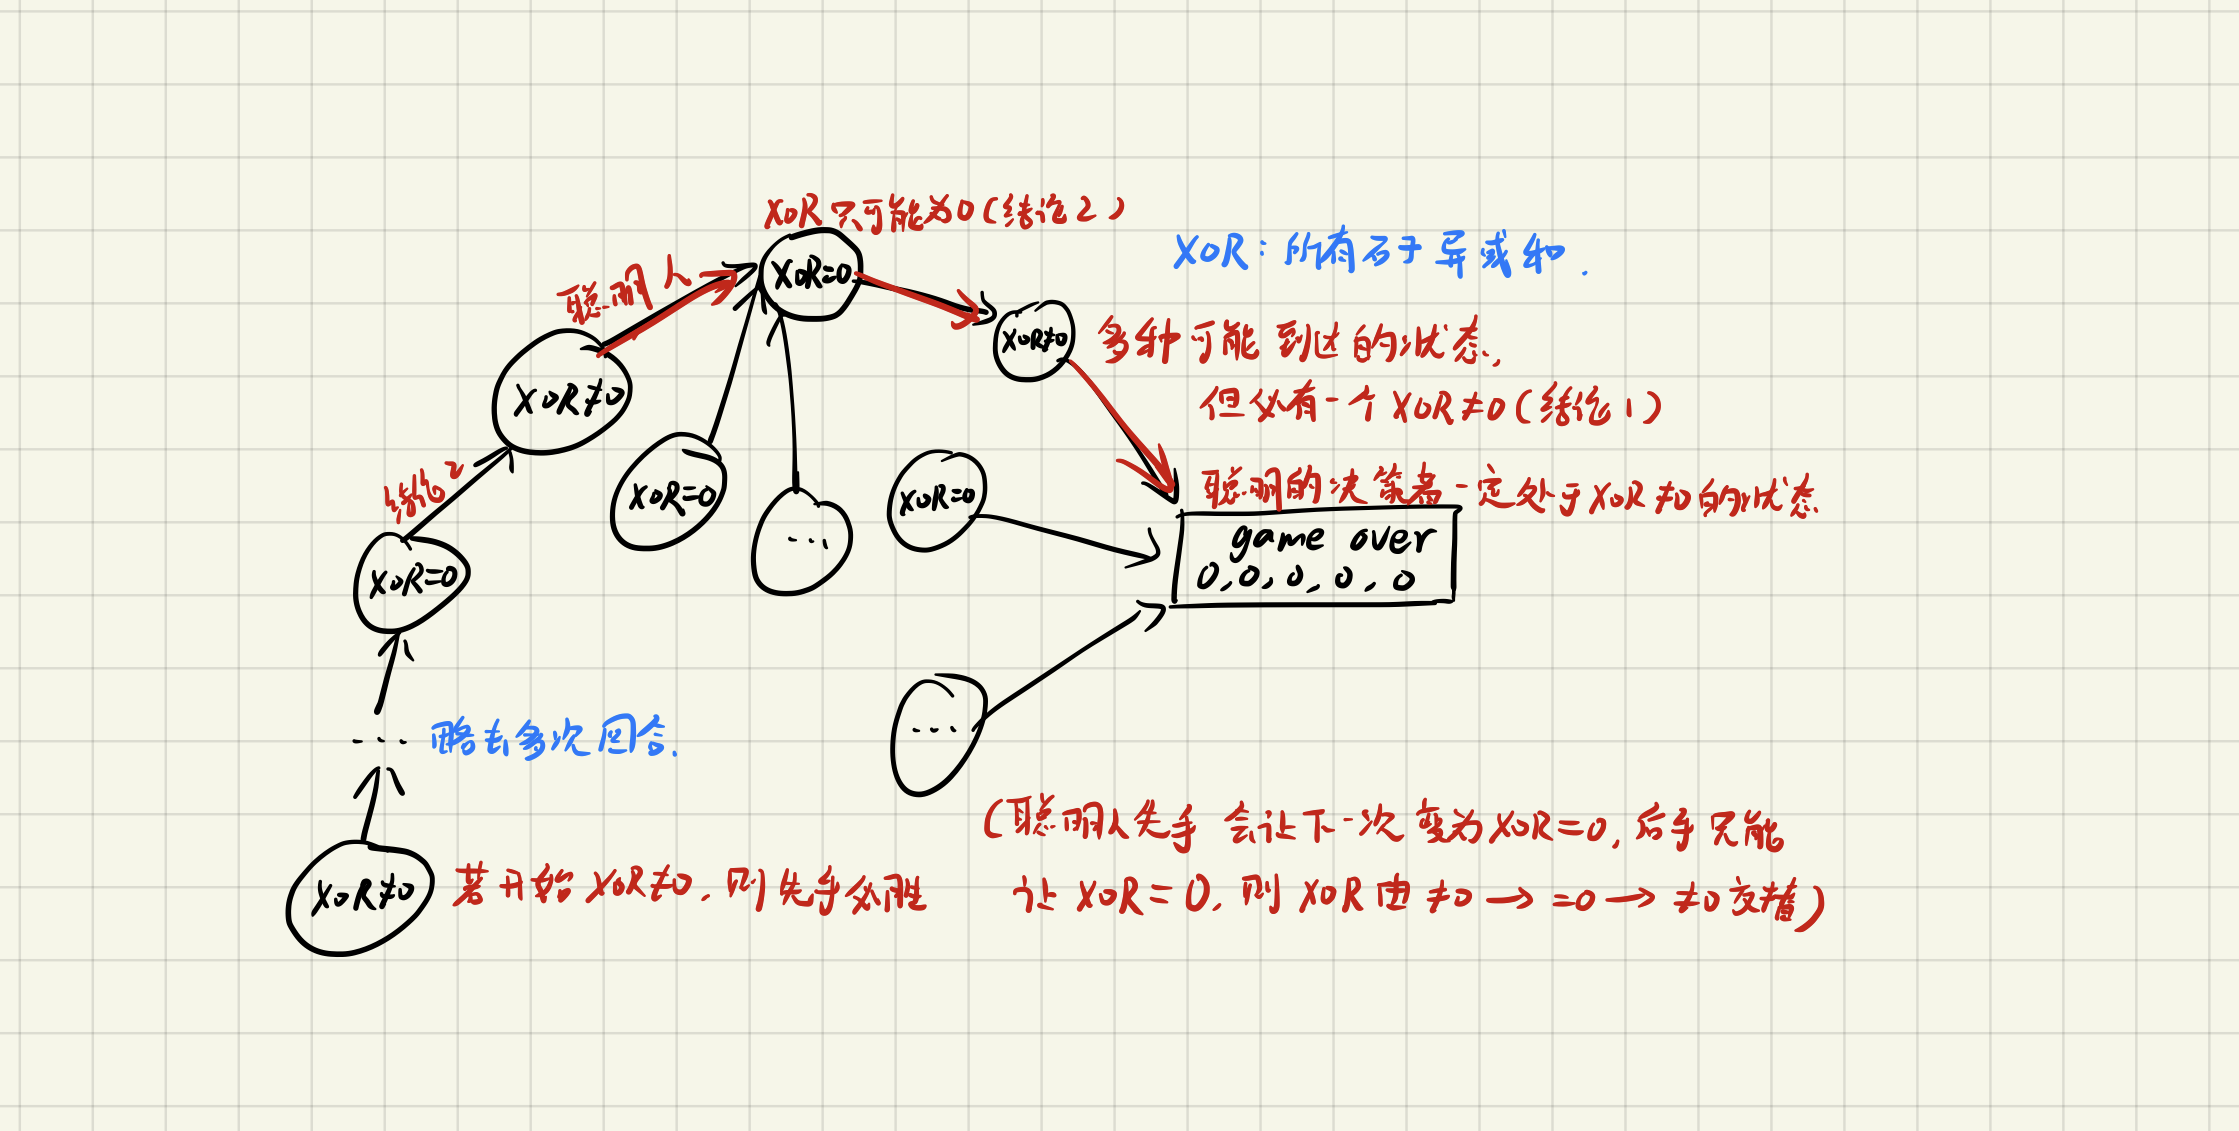 XOR只可能为0(结论2)
XOR：所有石子异或和.
聪明人
XOR=0
XOR≠0
多种可能到达的状态,
但必有一个XOR≠0(结论1)
XOR≠0
聪明的决策者一定处于XOR≠0的状态
结论2
XOR=0
XOR=0
...
game over
0,0,0,0,0
XOR=0
...
... 略去多次回合.
(聪明人先手会让下一次变为XOR=0,后手只能
让XOR=0,则XOR由≠0→=0→≠0交替)
XOR≠0 若开始XOR≠0,则先手必胜